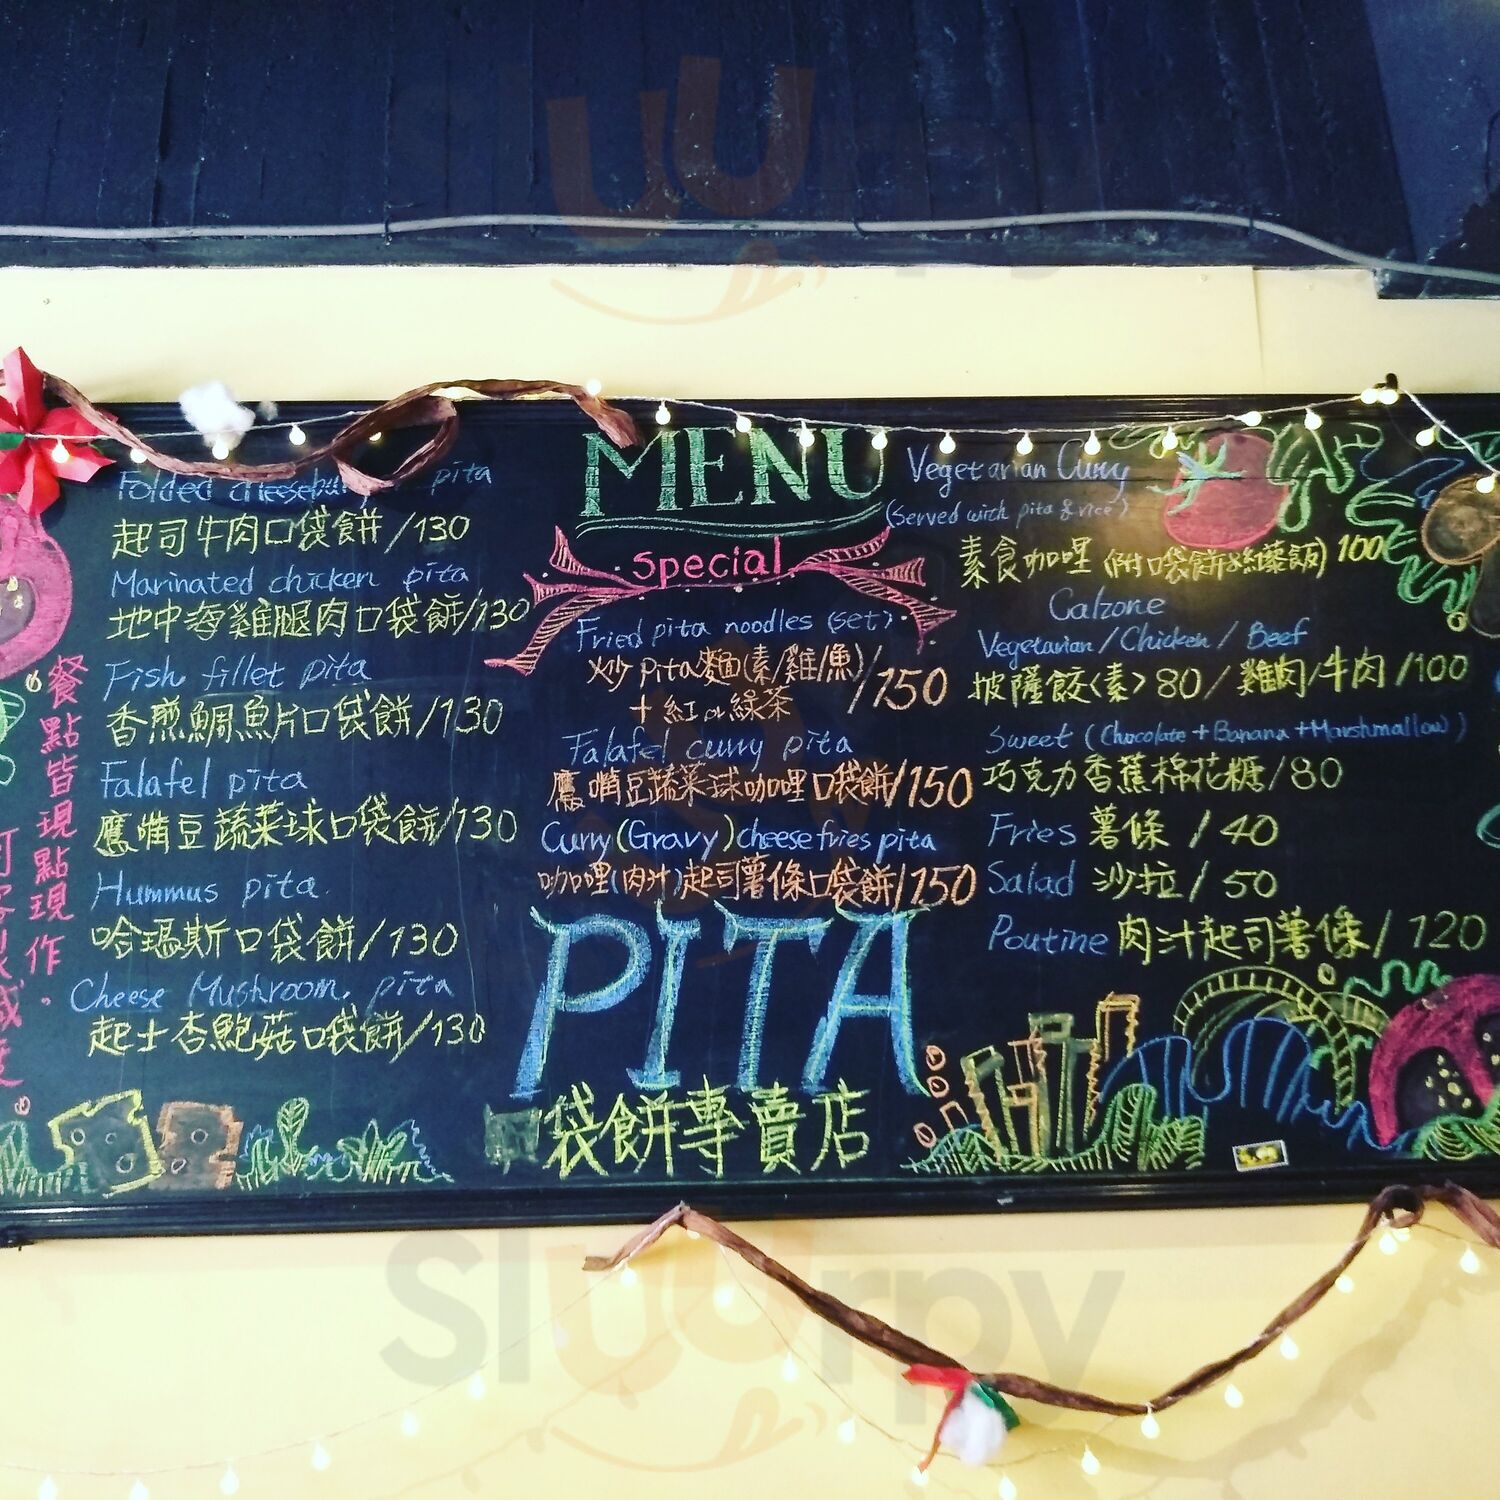 MENU
Special
Folded cheeseburger pita
起司牛肉口袋餅/130
Marinated chicken pita
地中海雞腿肉口袋餅/130
Fish fillet pita
香煎鯛魚片口袋餅/130
Falafel pita
鷹嘴豆蔬菜球口袋餅/130
Hummus pita
哈瑪斯口袋餅/130
Cheese Mushroom pita
起士杏鮑菇口袋餅/130
餐點皆現點現作。
Fried pita noodles (set)
炒pita麵(素/雞/魚)/150
+紅or綠茶
Falafel curry pita
鷹嘴豆蔬菜球咖哩口袋餅/150
Curry(Gravy)cheese fries pita
咖哩(肉汁)起司薯條口袋餅/150
PITA
袋餅專賣店
Vegetarian Curry
(Served with pita & rice)
素食咖哩(附口袋餅&紅藜飯)100
Calzone
Vegetarian / Chicken / Beef
披薩餃<素>80/雞肉/牛肉/100
Sweet (Chocolate+Banana+Marshmallow)
巧克力香蕉棉花糖/80
Fries 薯條 / 40
Salad 沙拉 / 50
Poutine 肉汁起司薯條/120
Sluurpy
Sluurpy